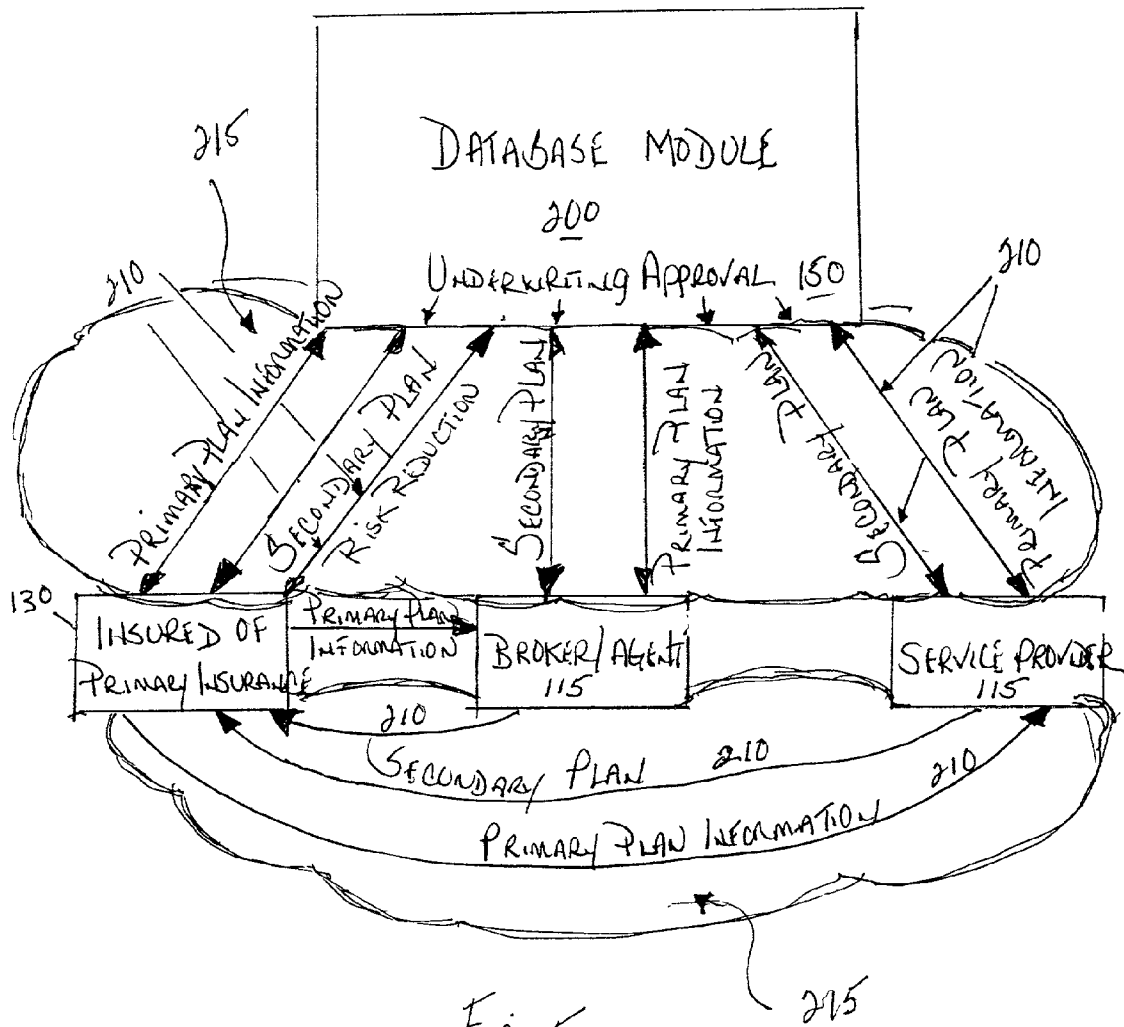 DATABASE MODULE
200
UNDERWRITING APPROVAL 150
215
210
210
PRIMARY PLAN INFORMATION
SECONDARY PLAN
RISK REDUCTION
SECONDARY PLAN
PRIMARY PLAN
INFORMATION
SECONDARY PLAN
PRIMARY PLAN
INFORMATION
130
INSURED OF
PRIMARY INSURANCE
PRIMARY PLAN
INFORMATION
BROKER/AGENT
115
SERVICE PROVIDER
115
210
SECONDARY PLAN 210
210
PRIMARY PLAN INFORMATION
215